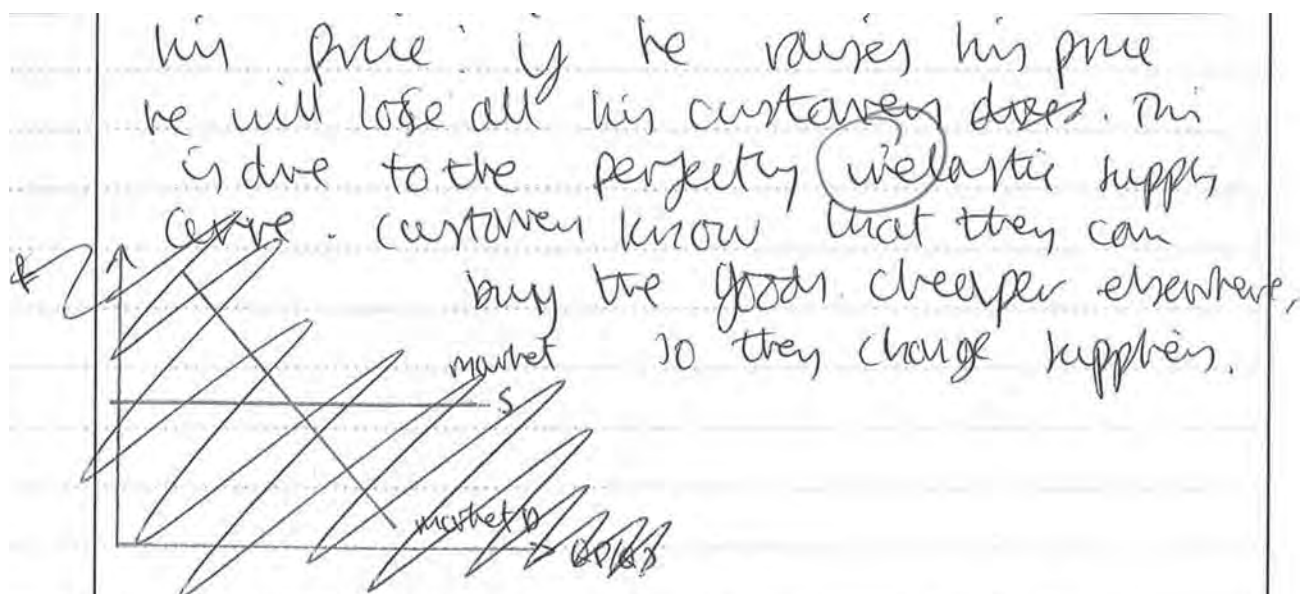 his price. if he raises his price
he will lose all his customers does. This
is due to the perfectly inelastic supply
curve. Customers know that they can
buy the goods cheaper elsewhere,
so they change suppliers.
market
S
market D